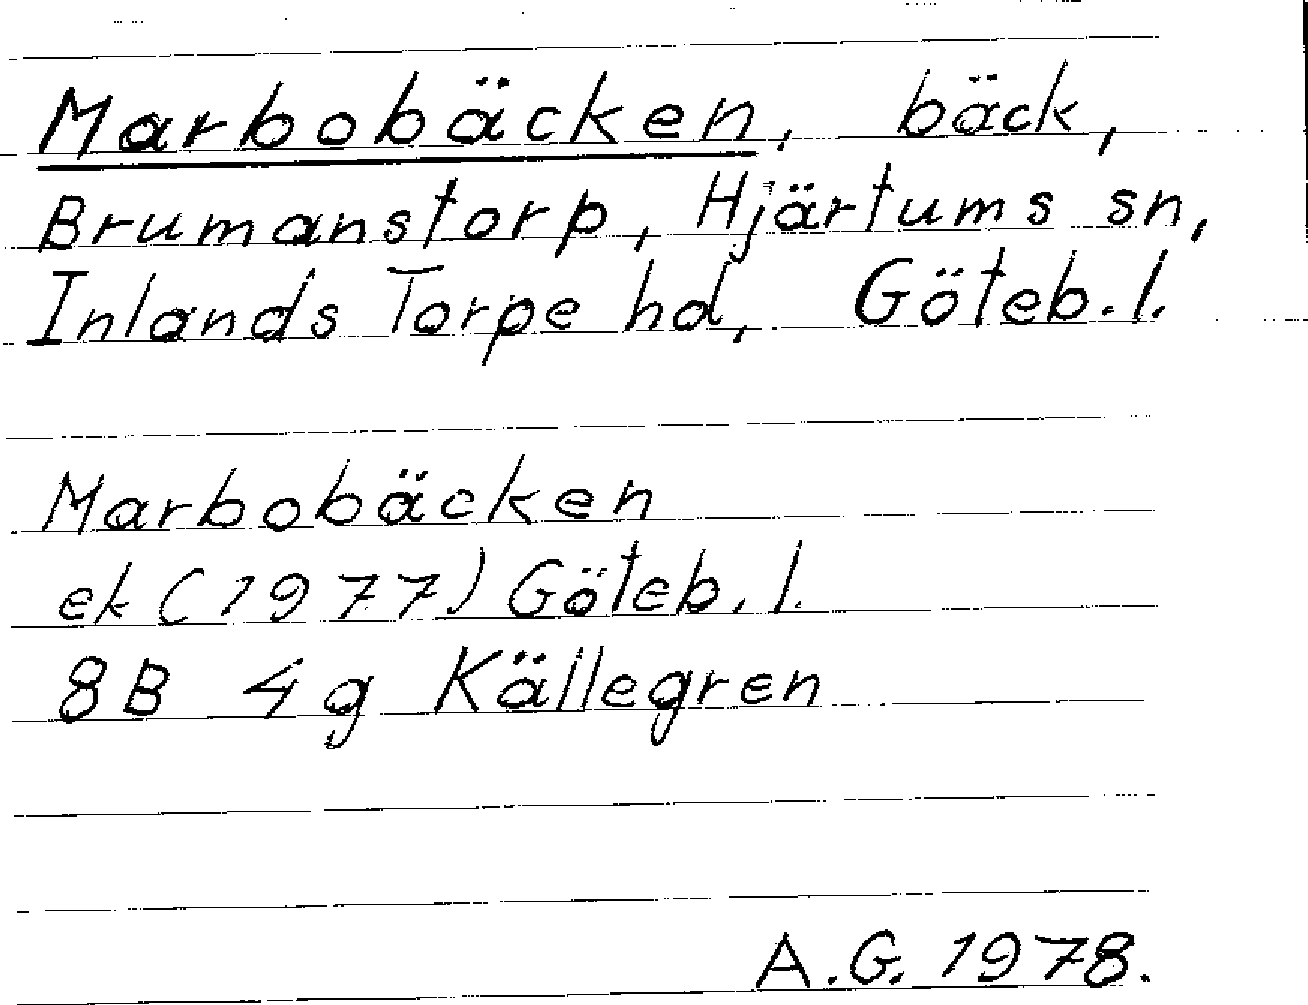 Marbobäcken, bäck,
Brumanstorp, Hjärtums sn,
Inlands Torpe hd, Göteb. l.
Marbobäcken
ek (1977) Göteb. l.
8B 4g Källegren
A.G. 1978.